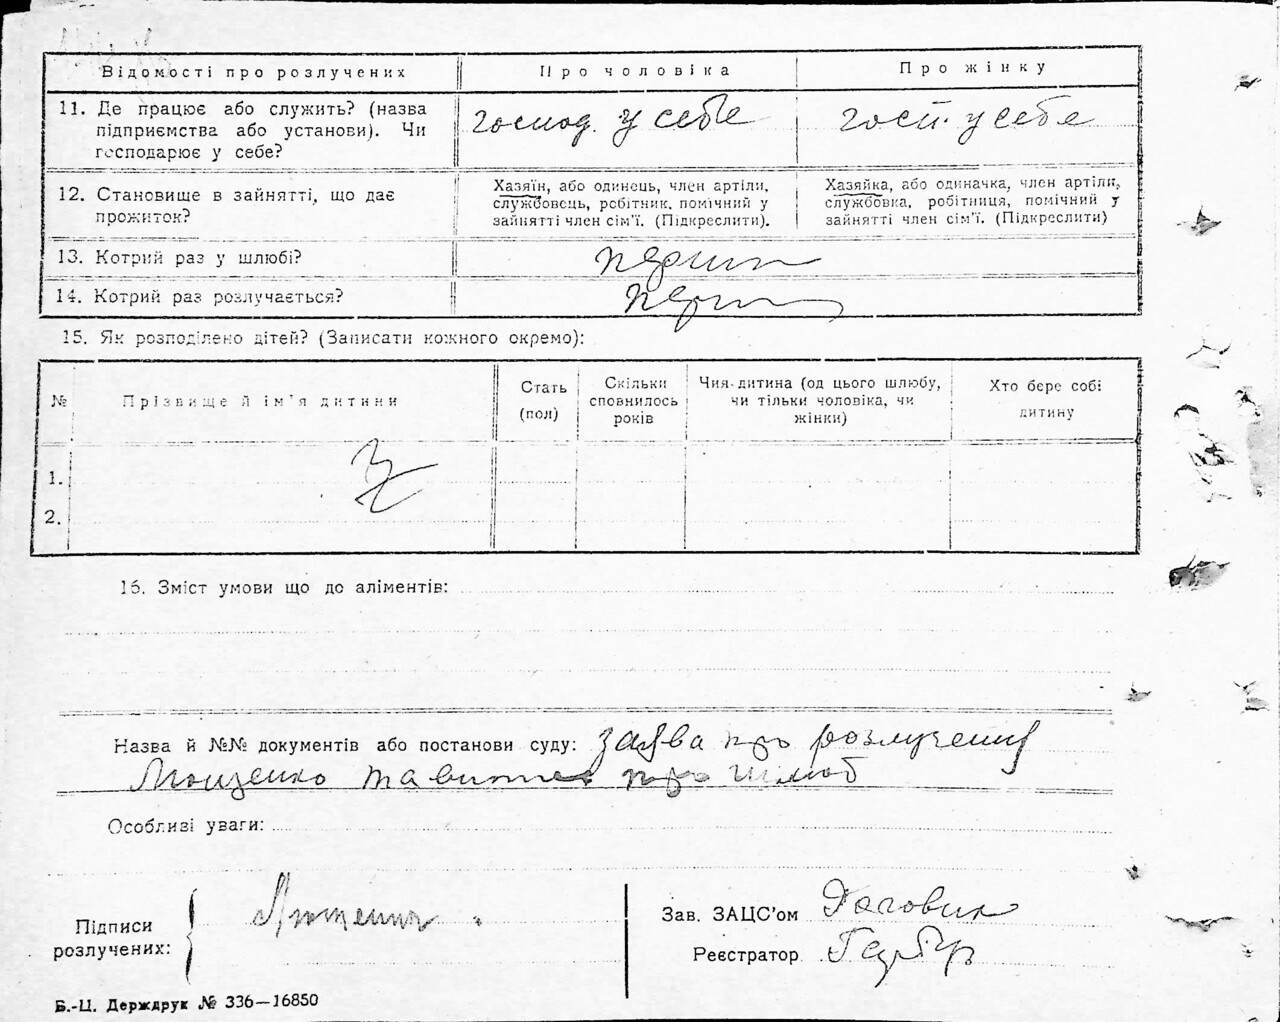 Відомості про розлучених Про чоловіка Про жінку
11. Де працює або служить? (назва підприємства або установи). Чи господарює у себе?
господ. у себе госп. у себе
12. Становище в зайнятті, що дає прожиток?
Хазяїн, або одинець, член артіли, службовець, робітник, помічний у зайнятті член сім'ї. (Підкреслити).
Хазяйка, або одиначка, член артіли, службовка, робітниця, помічний у зайнятті член сім'ї. (Підкреслити)
13. Котрий раз у шлюбі? перший
14. Котрий раз розлучається?
15. Як розподілено дітей? (Записати кожного окремо):
№ Прізвище й ім'я дитини Стать (пол) Скільки сповнилось років Чия-дитина (од цього шлюбу, чи тільки чоловіка, чи жінки) Хто бере собі дитину
1.
2.
16. Зміст умови що до аліментів:
Назва й №№ документів або постанови суду: заява про розлучення
та про шлюб
Особливі уваги:
Підписи розлучених:
Зав. ЗАЦС'ом
Реєстратор
Б.-Ц. Держдрук № 336—16850